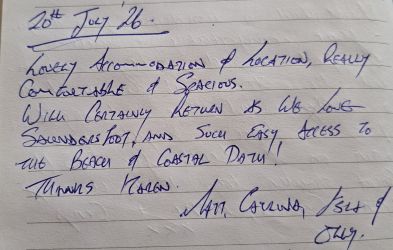 20th July '26.
Lovely Accommodation & Location, Really
Comfortable & Spacious.
Will Certainly Return as we love
Saundersfoot, and such easy access to
the Beach & Coastal Path!
Thanks Karen.
Matt, Isla &
Olly.